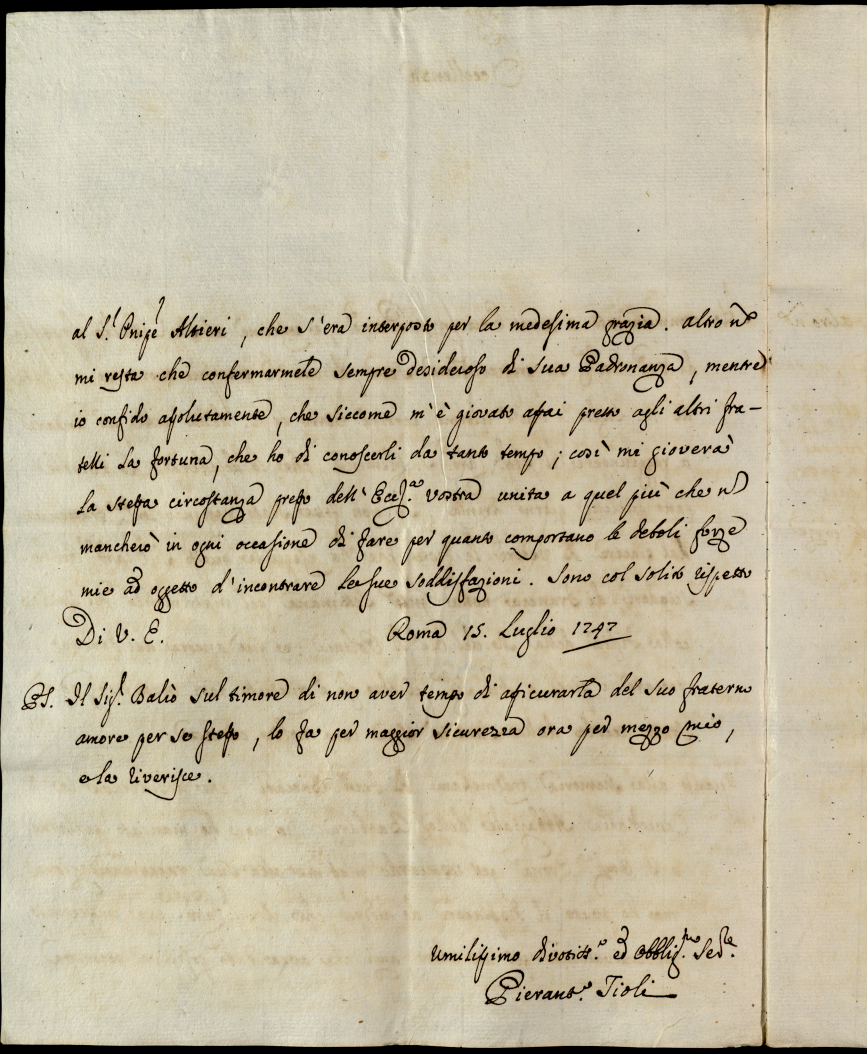 al S.r Pnipe Altieri, che s'era interposto per la medesima grazia. altro nō
mi resta che confermarmele sempre desideroso di sua Padronanza, mentre
io confido assolutamente, che siccome m'è giovato assai presso agli altri fra-
telli la fortuna, che ho di conoscerli da tanto tempo; così mi gioverà
la stessa circostanza presso dell'Eccel.a vostra unita a quel più che n̄
mancherò in ogni occasione di fare per quanto comportano le deboli forze
mie ad oggetto d'incontrare le sue soddisfazioni. Sono col solito rispetto
Di V. E. Roma 15. Luglio 1747
PS. Il Sig.r Balio sul timore di non aver tempo di assicurarla del suo fraterno
amore per se stesso, lo fa per maggior sicurezza ora per mezzo mio,
e la riverisce.
Umilissimo divotiss.o ed obblig.mo Ser.re
Pierant.o Tioli